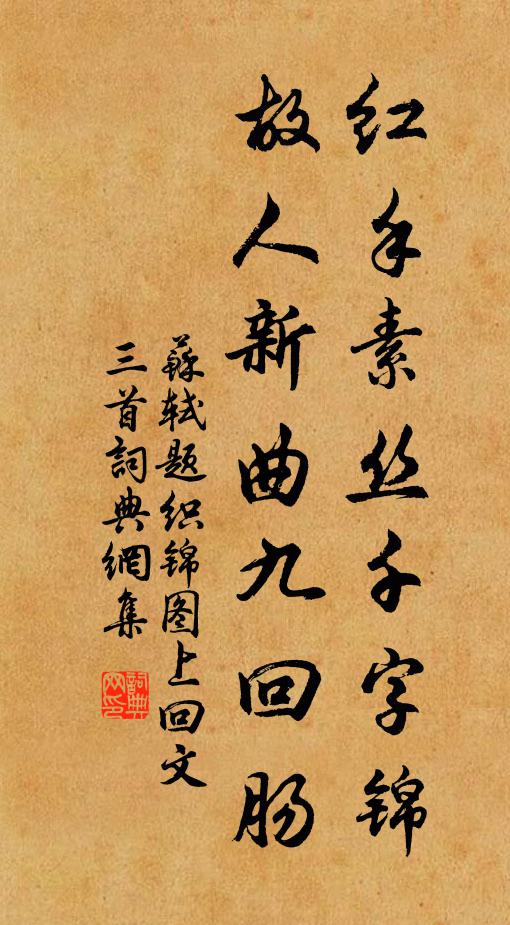 红手素丝千字锦
故人新曲九回肠
蘇轼题织锦图上回文
三首詞典網集
詞典网印